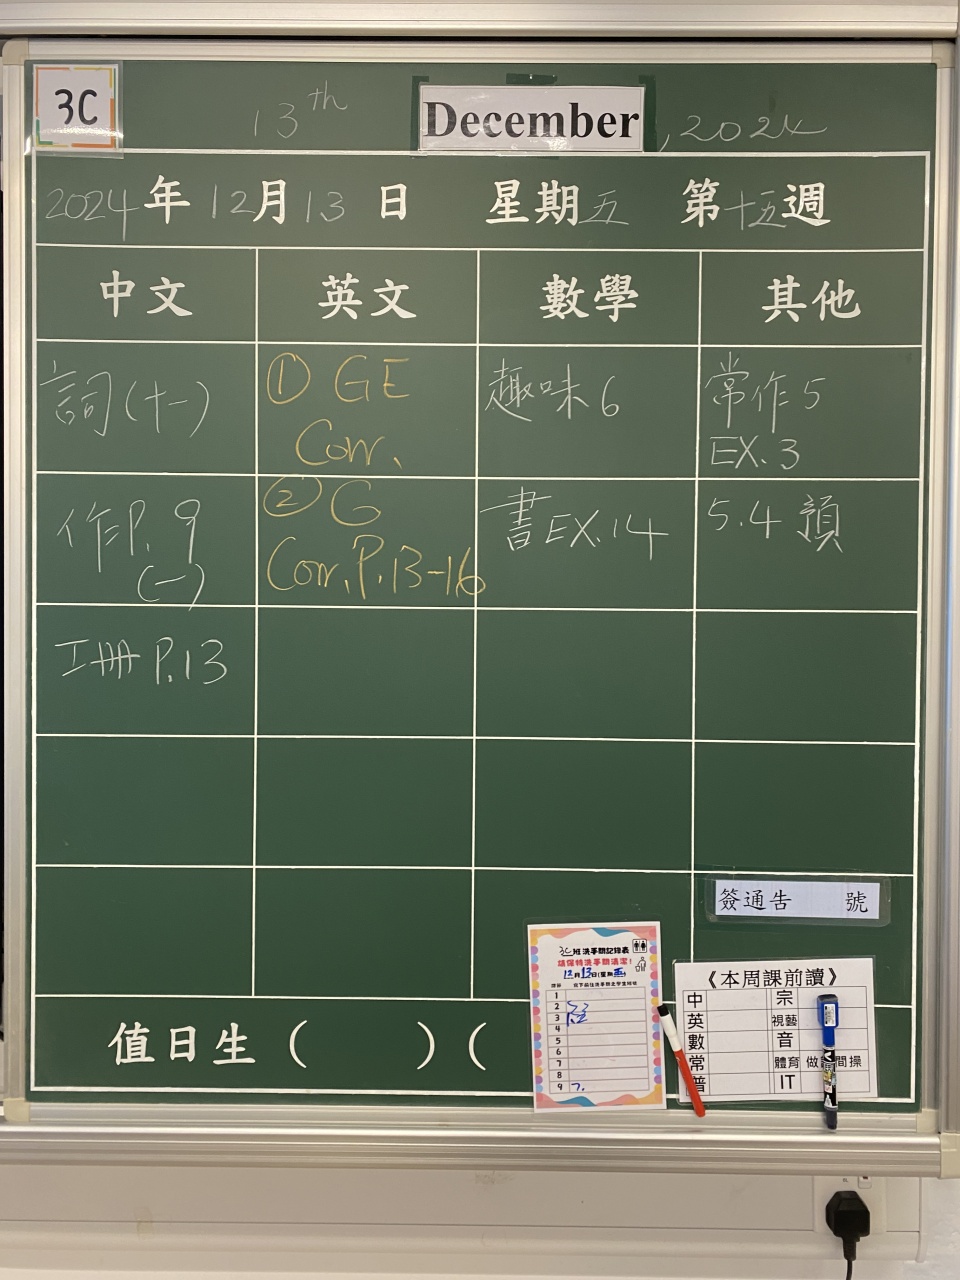 3C
13th December, 2024
2024年12月13日 星期五 第十五週
中文 英文 數學 其他
詞(十一)
① GE
Corr.
趣味6
常作5
EX.3
作P.9
(一)
② G
Corr.P.13-16
書EX.14
5.4
工冊P.13
簽通告 號
值日生( )(
3C班洗手間記錄表
請保持洗手間清潔！
12月13日(星期五)
1
2
3
4
5
6
7
8
9
《本周課前讀》
中 宗
英 視藝
數 音
常 體育 做 間操
普 IT